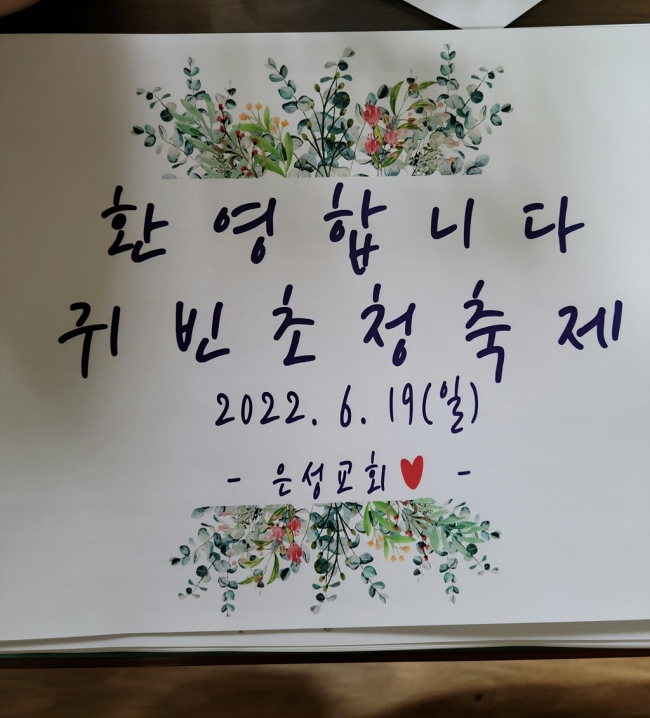 환영합니다
귀빈초청축제
2022. 6. 19(일)
- 은성교회♥ -